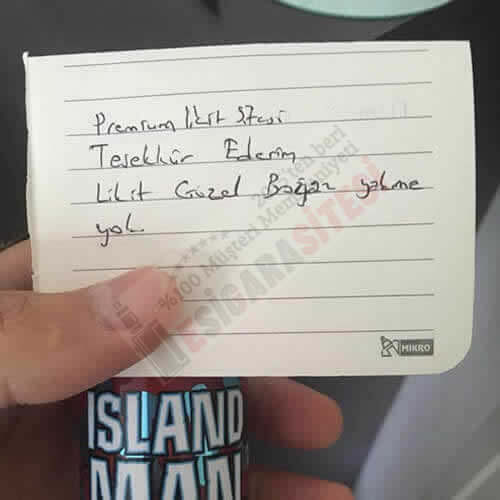 Premium likit sitesi
Teşekkür Ederim
Likit Güzel Boğaz yakma
yok
MIKRO
%100 Müşteri Memnuniyeti
ESİGARASİTESİ
ISLAND
MAN